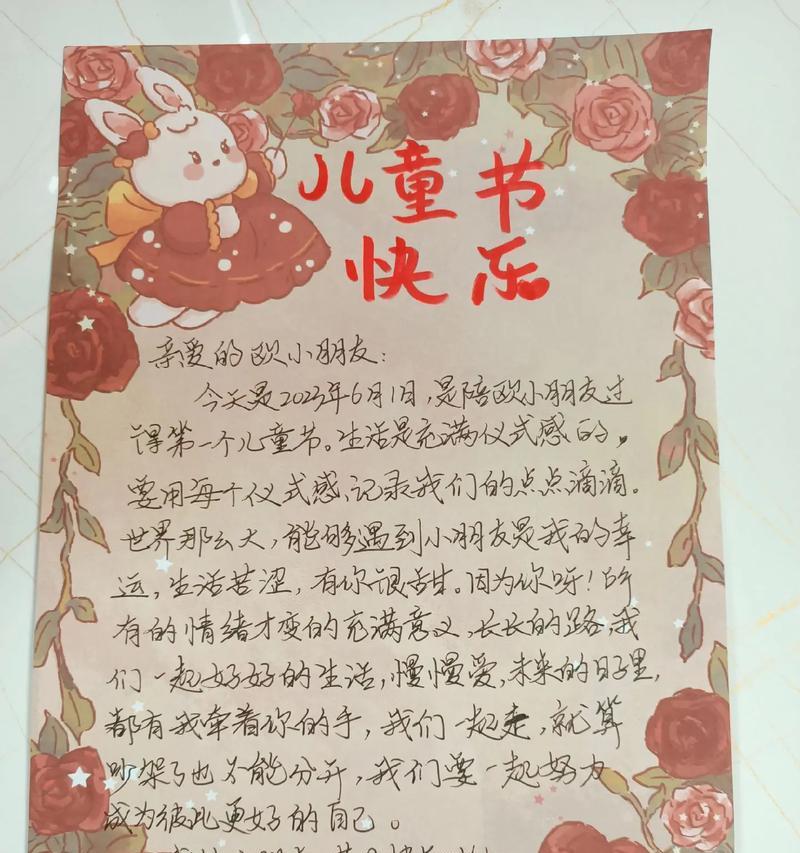 儿童节
快乐
亲爱的欧小朋友：
今天是2023年6月1日，是陪欧小朋友过
得第一个儿童节。生活是充满仪式感的，
要用每个仪式感、记录我们的点点滴滴。
世界那么大，能够遇到小朋友是我的幸
运，生活苦涩，有你很甜。因为你呀！所
有的情绪才变的充满意义，长长的路，我
们一起好好的生活，慢慢爱，未来的日子里，
都有我牵着你的手，我们一起走，就算
吵架了也不能分开，我们要一起努力
成为彼此更好的自己。